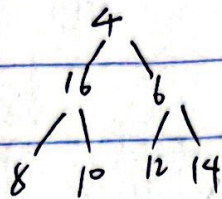 4
16 6
8 10 12 14